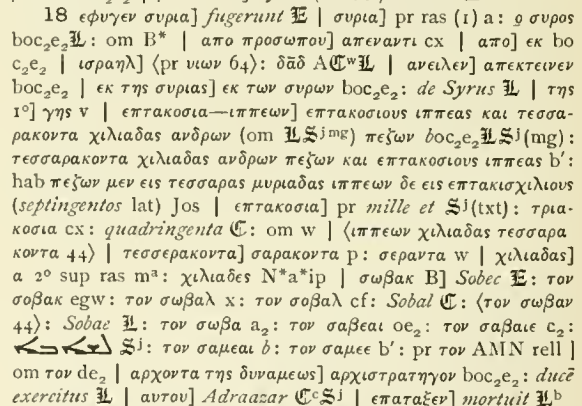 18 εφυγεν συρια] fugerunt 𝕰 | συρια] pr ras (1) a: ο συρος
boc₂e₂𝕷: om B* | απο προσωπου] απεναντι cx | απο] εκ bo
c₂e₂ | ισραηλ] ⟨pr υιων 64⟩: δᾱδ Aℭʷ𝕷 | ανειλεν] απεκτεινεν
boc₂e₂ | εκ της συριας] εκ των συρων boc₂e₂: de Syrus 𝕷 | της
1°] γης v | επτακοσια—ιππεων] επτακοσιους ιππεας και τεσσα-
ρακοντα χιλιαδας ανδρων (om 𝕷𝕾ʲᵐᵍ) πεζων boc₂e₂𝕷𝕾ʲ(mg):
τεσσαρακοντα χιλιαδας ανδρων πεζων και επτακοσιους ιππεας b′:
hab πεζων μεν εις τεσσαρας μυριαδας ιππεων δε εις επτακισχιλιους
(septingentos lat) Jos | επτακοσια] pr mille et 𝕾ʲ(txt): τρια-
κοσια cx: quadringenta ℭ: om w | ⟨ιππεων χιλιαδας τεσσαρα
κοντα 44⟩ | τεσσερακοντα] σαρακοντα p: σεραντα w | χιλιαδας]
α 2° sup ras mᵃ: χιλιαδες N*a*ip | σωβακ B] Sobec 𝕰: τον
σοβακ egw: τον σωβαλ x: τον σοβαλ cf: Sobal ℭ: ⟨τον σωβαν
44⟩: Sobae 𝕷: τον σωβα a₂: τον σαβεαι oe₂: τον σαβαιε c₂:
𝕾ʲ: τον σαμεαι b: τον σαμεε b′: pr τον AMN rell ]
om τον de₂ | αρχοντα της δυναμεως] αρχιστρατηγον boc₂e₂: ducē
exercitus 𝕷 | αυτου] Adraazar ℭᶜ𝕾ʲ | επαταξεν] mortuit 𝕷ᵇ